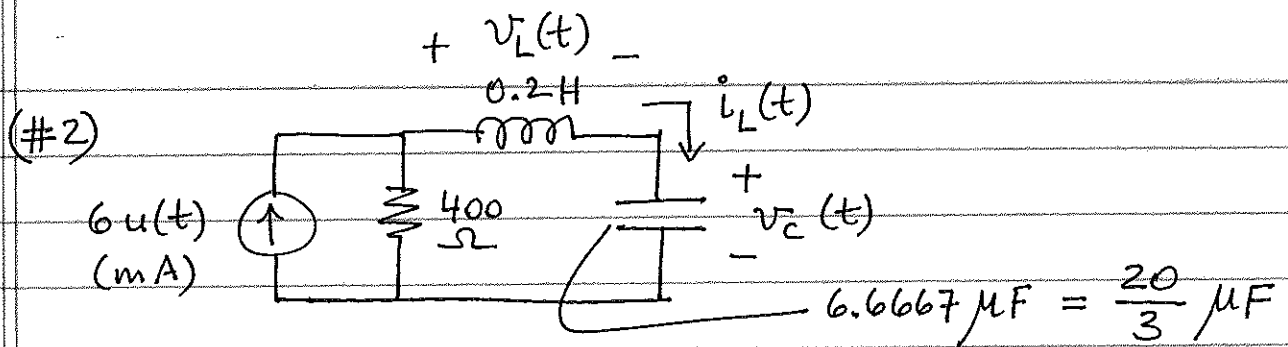 + v_L(t) -
0.2H
i_L(t)
(#2)
6u(t)
(mA)
400
Ω
+
v_c(t)
-
6.6667 μF = 20/3 μF